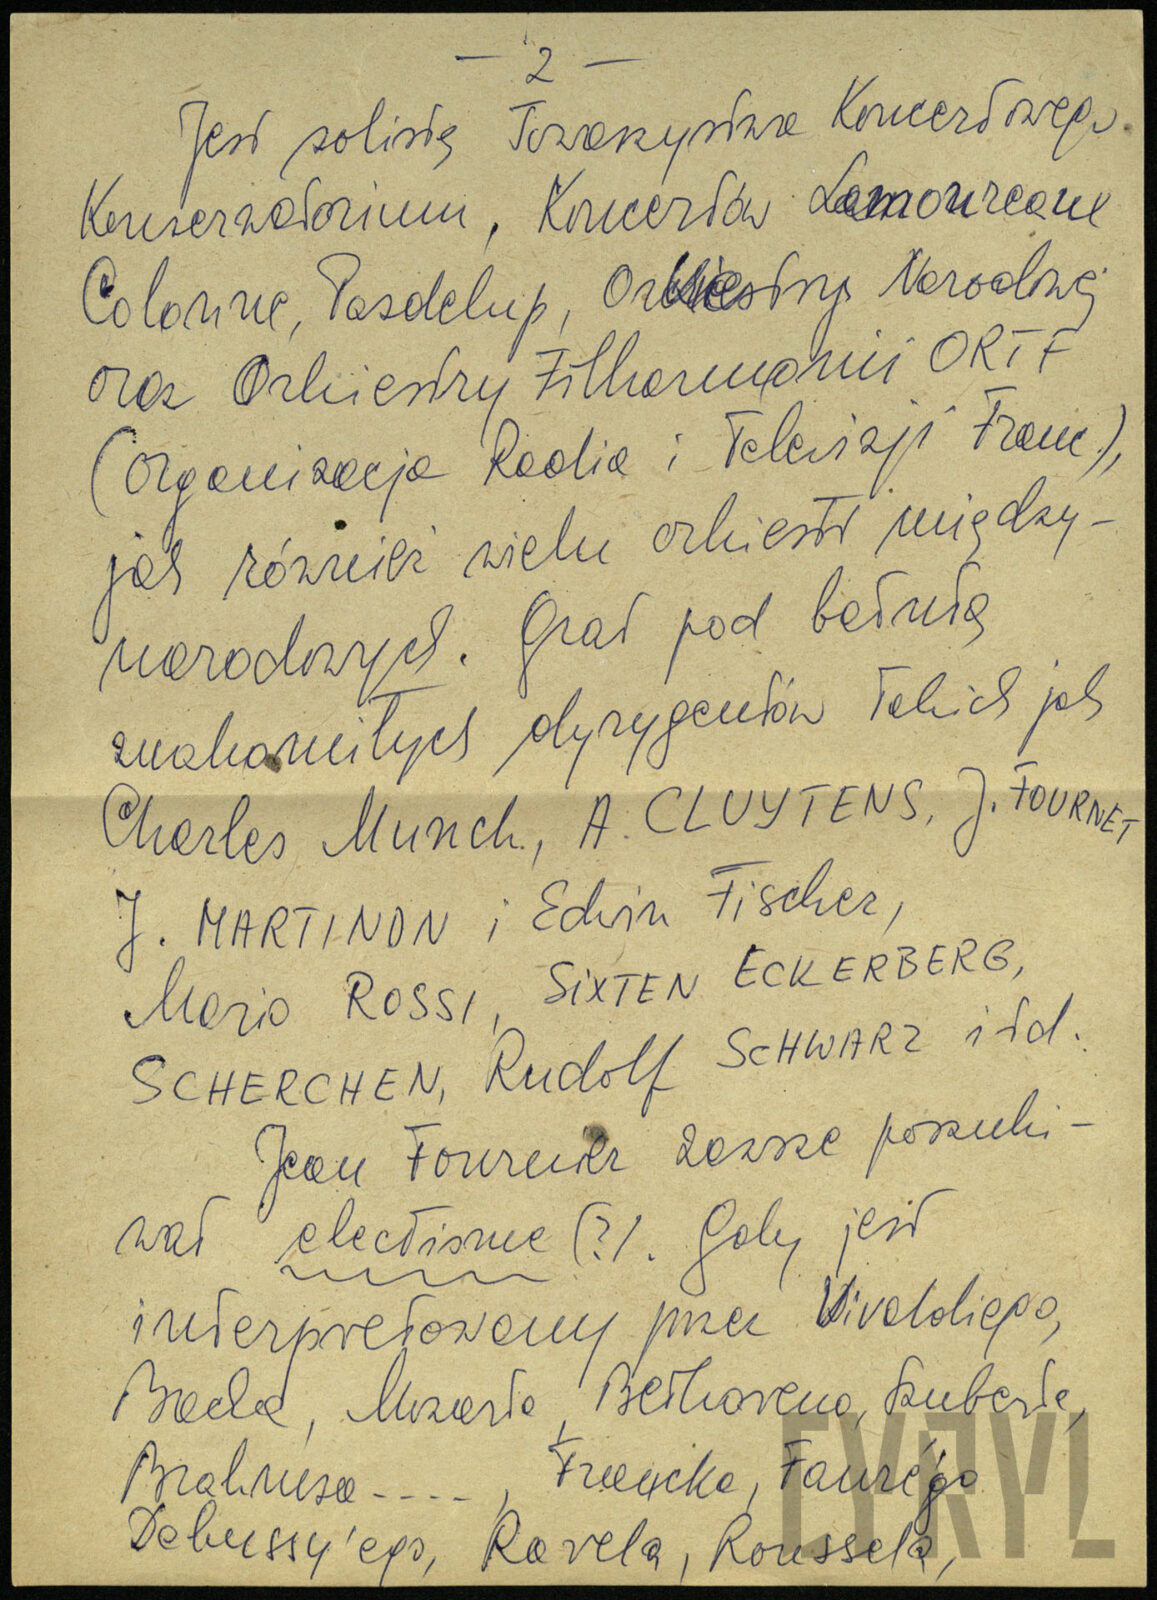 – 2 –
Jest solistą Towarzystwa Koncertowego
Konserwatorium, Koncertów Lamoureaux
Colonne, Pasdelup, Orkiestry Narodowej
oraz Orkiestry Filharmonii ORTF
(Organizacja Radia i Telewizji Franc.),
jak również wielu orkiestr między-
narodowych. Grał pod batutą
znakomitych dyrygentów takich jak
Charles Munch, A. CLUYTENS, J. FOURNET
J. MARTINON i Edwin Fischer,
Mario ROSSI, SIXTEN ECKERBERG,
SCHERCHEN, Rudolf SCHWARZ itd.
Jean Fournier zawsze poszuki-
wał electisme (?). Gdy jest
interpretowany przez Vivaldiego,
Bacha, Mozarta, Bethovena, Szuberta,
Brahmsa ----, Francka, Fauré'go
Debussy'ego, Ravela, Roussela,
CYRYL